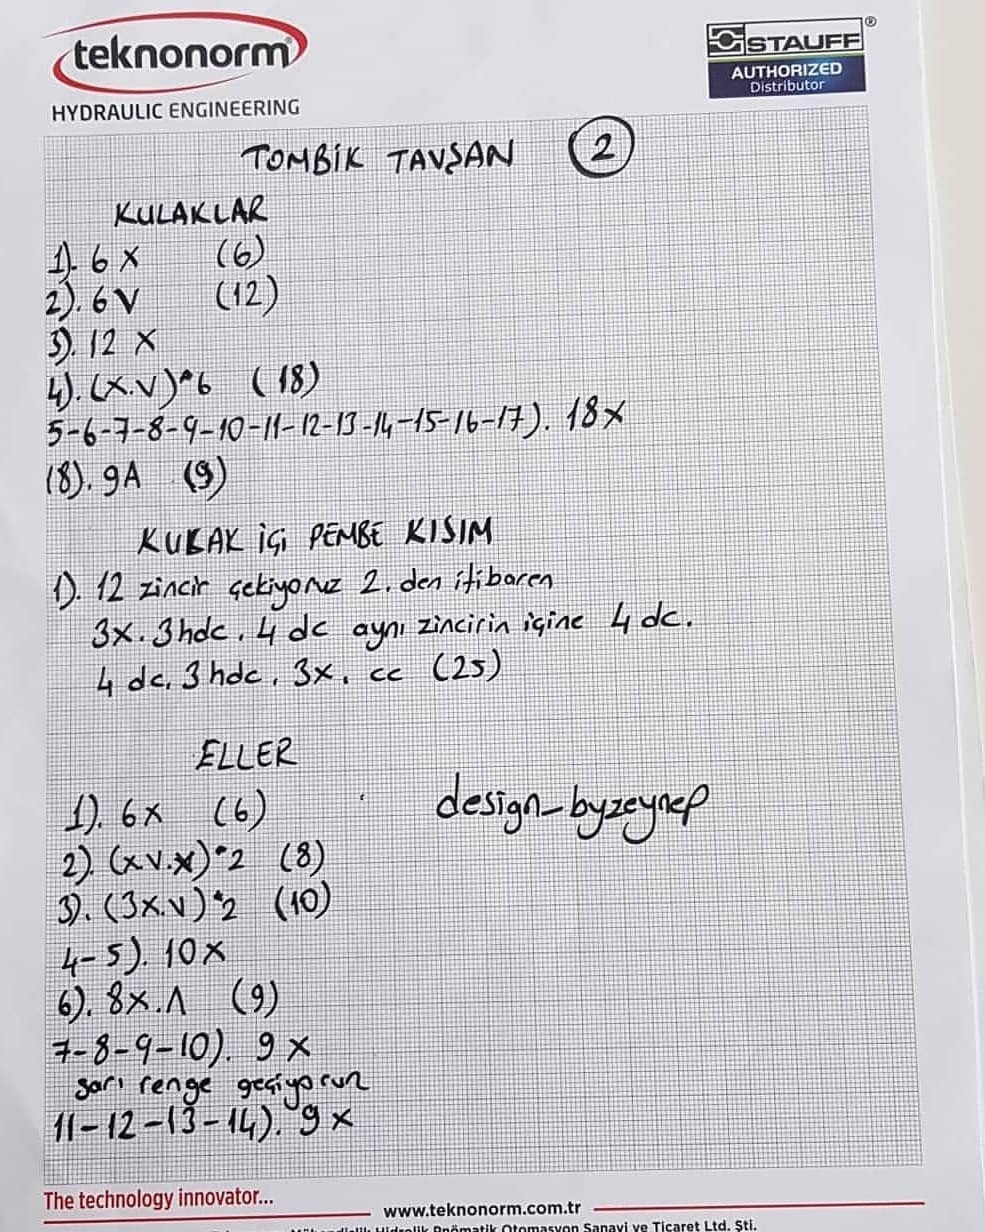 teknonorm
HYDRAULIC ENGINEERING
STAUFF®
AUTHORIZED
Distributor
TOMBİK TAVŞAN 2
KULAKLAR
1). 6 X (6)
2). 6 V (12)
3). 12 X
4). (X.V)*6 (18)
5-6-7-8-9-10-11-12-13-14-15-16-17). 18X
18). 9A (9)
KULAK İÇİ PEMBE KISIM
1). 12 zincir çekiyoruz 2. den itibaren
3x. 3hdc. 4 dc aynı zincirin içine 4 dc.
4 dc, 3 hdc, 3x, cc (25)
ELLER
1). 6x (6)
design_byzeynep
2). (xv.x)*2 (8)
3). (3x.v)*2 (10)
4-5). 10x
6). 8x.Λ (9)
7-8-9-10). 9 x
sarı renge geçiyoruz
11-12-13-14). 9 x
The technology innovator...
www.teknonorm.com.tr
Hidrolik Pnömatik Otomasyon Sanayi ve Ticaret Ltd. Şti.